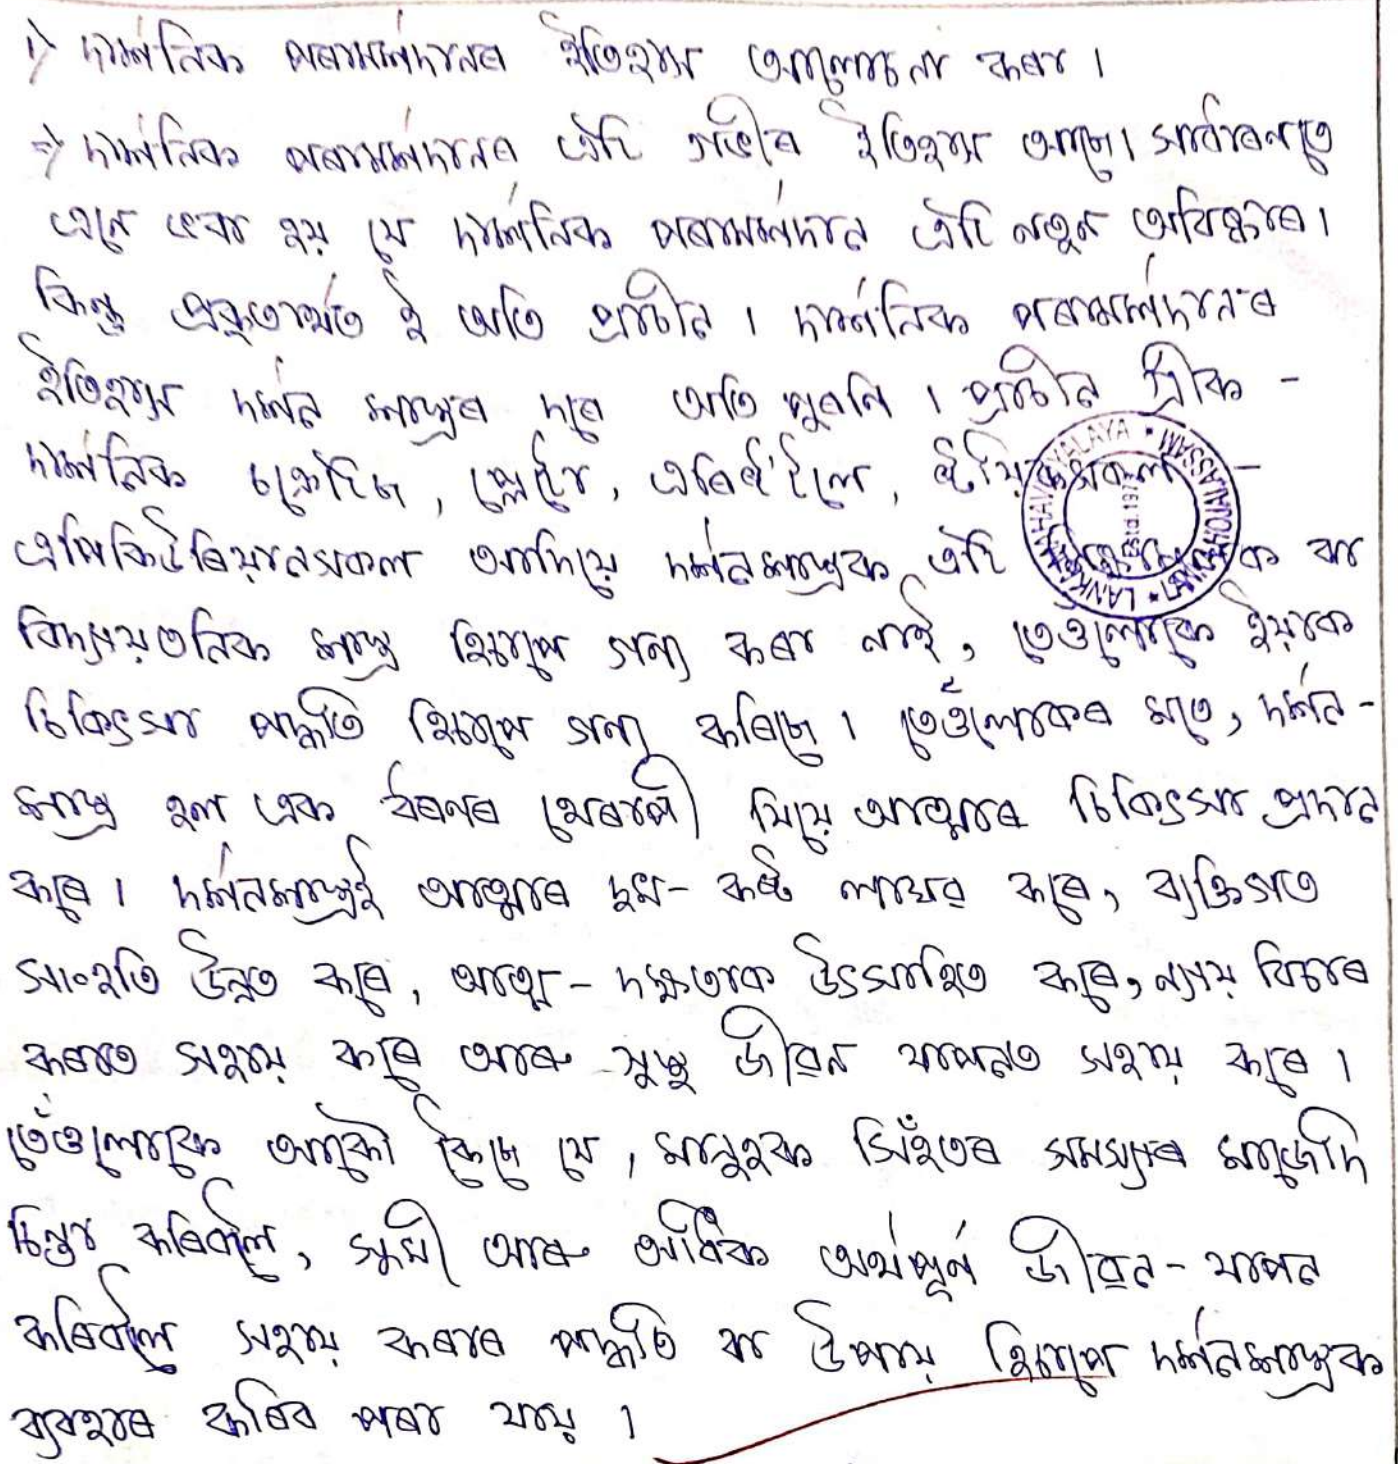 ১) দাৰ্শনিক পৰামৰ্শদানৰ ইতিহাস আলোচনা কৰা ।
⇒ দাৰ্শনিক পৰামৰ্শদানৰ এটি গভীৰ ইতিহাস আছে। সাধাৰণতে
এনে ধৰা হয় যে দাৰ্শনিক পৰামৰ্শদান এটি নতুন আবিষ্কাৰ।
কিন্তু প্ৰকৃতাৰ্থত ই অতি প্ৰাচীন । দাৰ্শনিক পৰামৰ্শদানৰ
ইতিহাস দৰ্শন শাস্ত্ৰৰ দৰে অতি পুৰণি । প্ৰাচীন গ্ৰীক -
দাৰ্শনিক চক্ৰেটিচ, প্লেটো, এৰিষ্ট'টলে, ষ্টয়িকসকল -
এপিকিউৰিয়ানসকল আদিয়ে দৰ্শনশাস্ত্ৰক এটি ক বা
বিদ্যায়তনিক শাস্ত্ৰ হিচাপে গণ্য কৰা নাই, তেওঁলোকে ইয়াক
চিকিৎসা পদ্ধতি হিচাপে গণ্য কৰিছে । তেওঁলোকৰ মতে, দৰ্শন-
শাস্ত্ৰ হল এক ধৰণৰ থেৰাপী যিয়ে আত্মাৰ চিকিৎসা প্ৰদান
কৰে । দৰ্শনশাস্ত্ৰই আত্মাৰ দুখ- কষ্ট লাঘৱ কৰে, ব্যক্তিগত
সাংহতি উন্নত কৰে, আত্ম- দক্ষতাক উৎসাহিত কৰে, ন্যায় বিচাৰ
কৰাত সহায় কৰে আৰু সুস্থ জীৱন যাপনত সহায় কৰে ।
তেওঁলোকে আকৌ কৈছে যে, মানুহক সিহঁতৰ সমস্যাৰ মাজেদি
চিন্তা কৰিবলৈ, সুখী আৰু অধিক অৰ্থপূৰ্ণ জীৱন- যাপন
কৰিবলৈ সহায় কৰাৰ পদ্ধতি বা উপায় হিচাপে দৰ্শনশাস্ত্ৰক
ব্যৱহাৰ কৰিব পৰা যায় ।
LANKA MAHAVIDYALAYA
ASSAM
Estd. 197